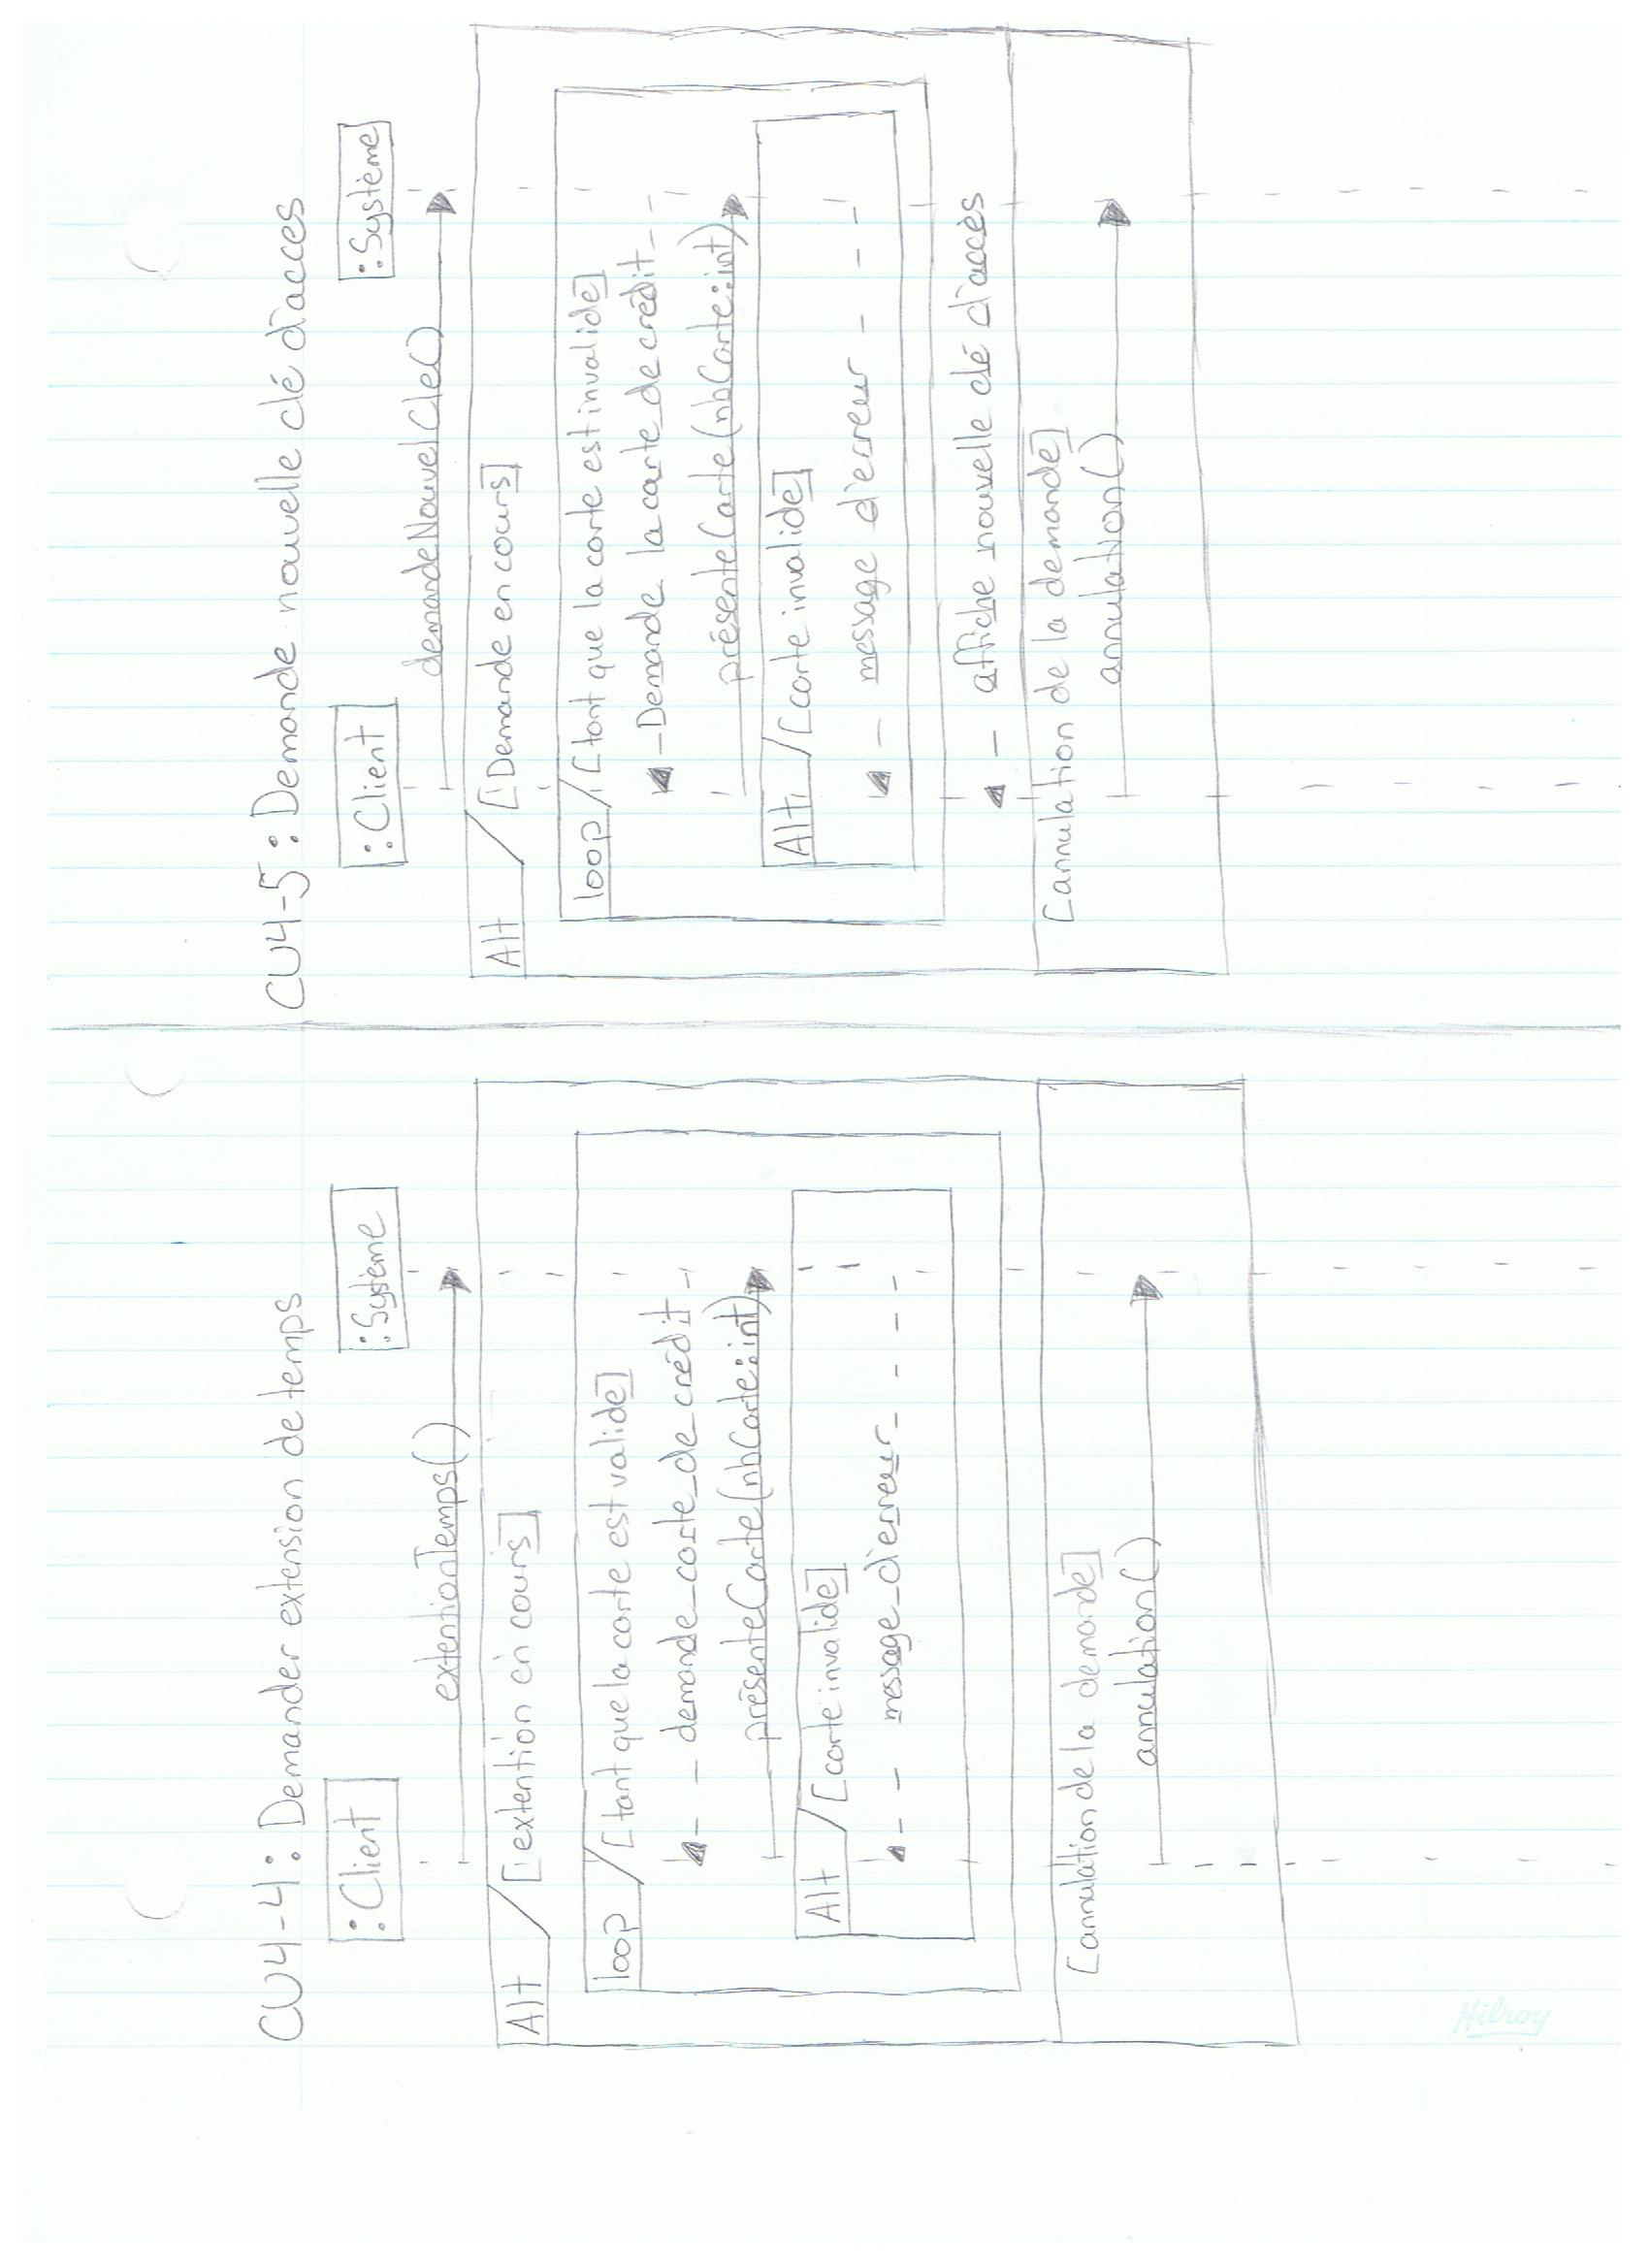 CU4-4: Demander extension de temps
:Client
:Système
extentionTemps()
Alt
[extention en cours]
loop
[tant que la carte est valide]
demande carte de crédit
présenteCarte(nbCarte:int)
Alt
[carte invalide]
message d'erreur
[annulation de la demande]
annulation()
Hilroy
CU4-5: Demande nouvelle clé d'acces
:Client
:Système
demandeNouvelCle()
Alt
[Demande en cours]
loop
[tant que la carte est invalide]
Demande la carte de crédit
présenteCarte(nbCarte:int)
Alt
[carte invalide]
message d'erreur
affiche nouvelle clé d'accès
[annulation de la demande]
annulation()